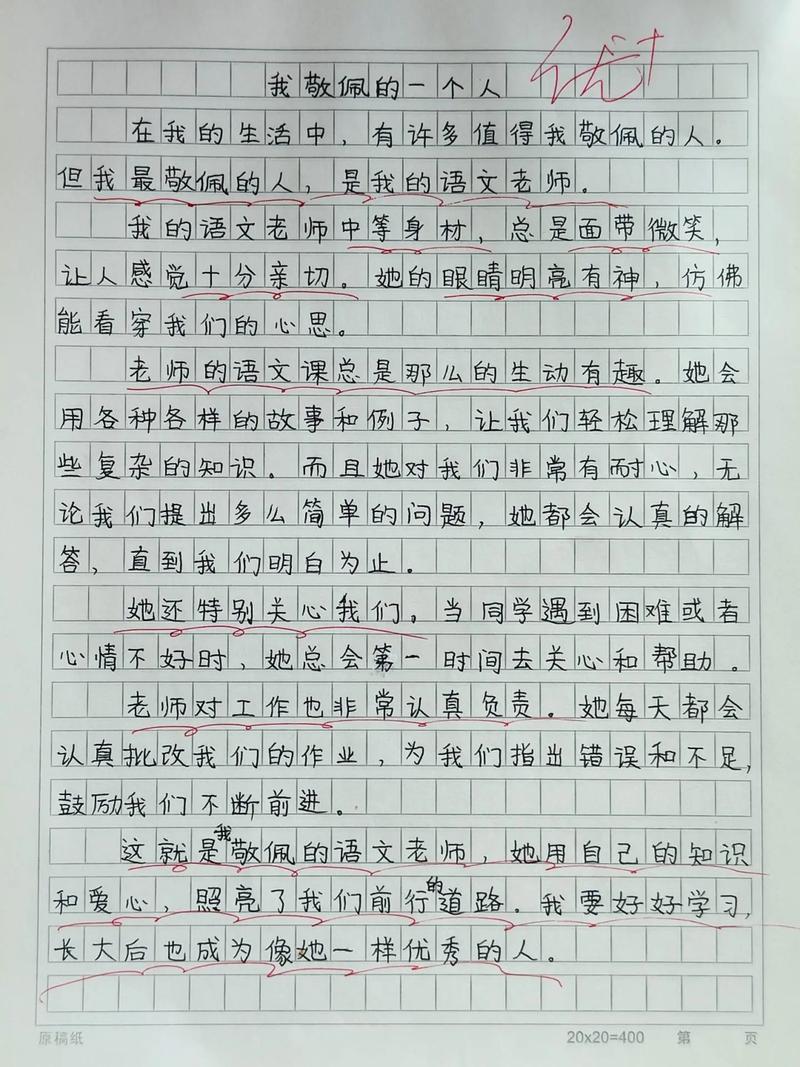 优+
我敬佩的一个人
在我的生活中，有许多值得我敬佩的人。
但我最敬佩的人，是我的语文老师。
我的语文老师中等身材，总是面带微笑，
让人感觉十分亲切。她的眼睛明亮有神，仿佛
能看穿我们的心思。
老师的语文课总是那么的生动有趣。她会
用各种各样的故事和例子，让我们轻松理解那
些复杂的知识。而且她对我们非常有耐心，无
论我们提出多么简单的问题，她都会认真的解
答，直到我们明白为止。
她还特别关心我们。当同学遇到困难或者
心情不好时，她总会第一时间去关心和帮助。
老师对工作也非常认真负责。她每天都会
认真批改我们的作业，为我们指出错误和不足，
鼓励我们不断前进。
这就是我敬佩的语文老师，她用自己的知识
和爱心，照亮了我们前行的道路。我要好好学习，
长大后也成为像她一样优秀的人。
原稿纸 20x20=400 第 页